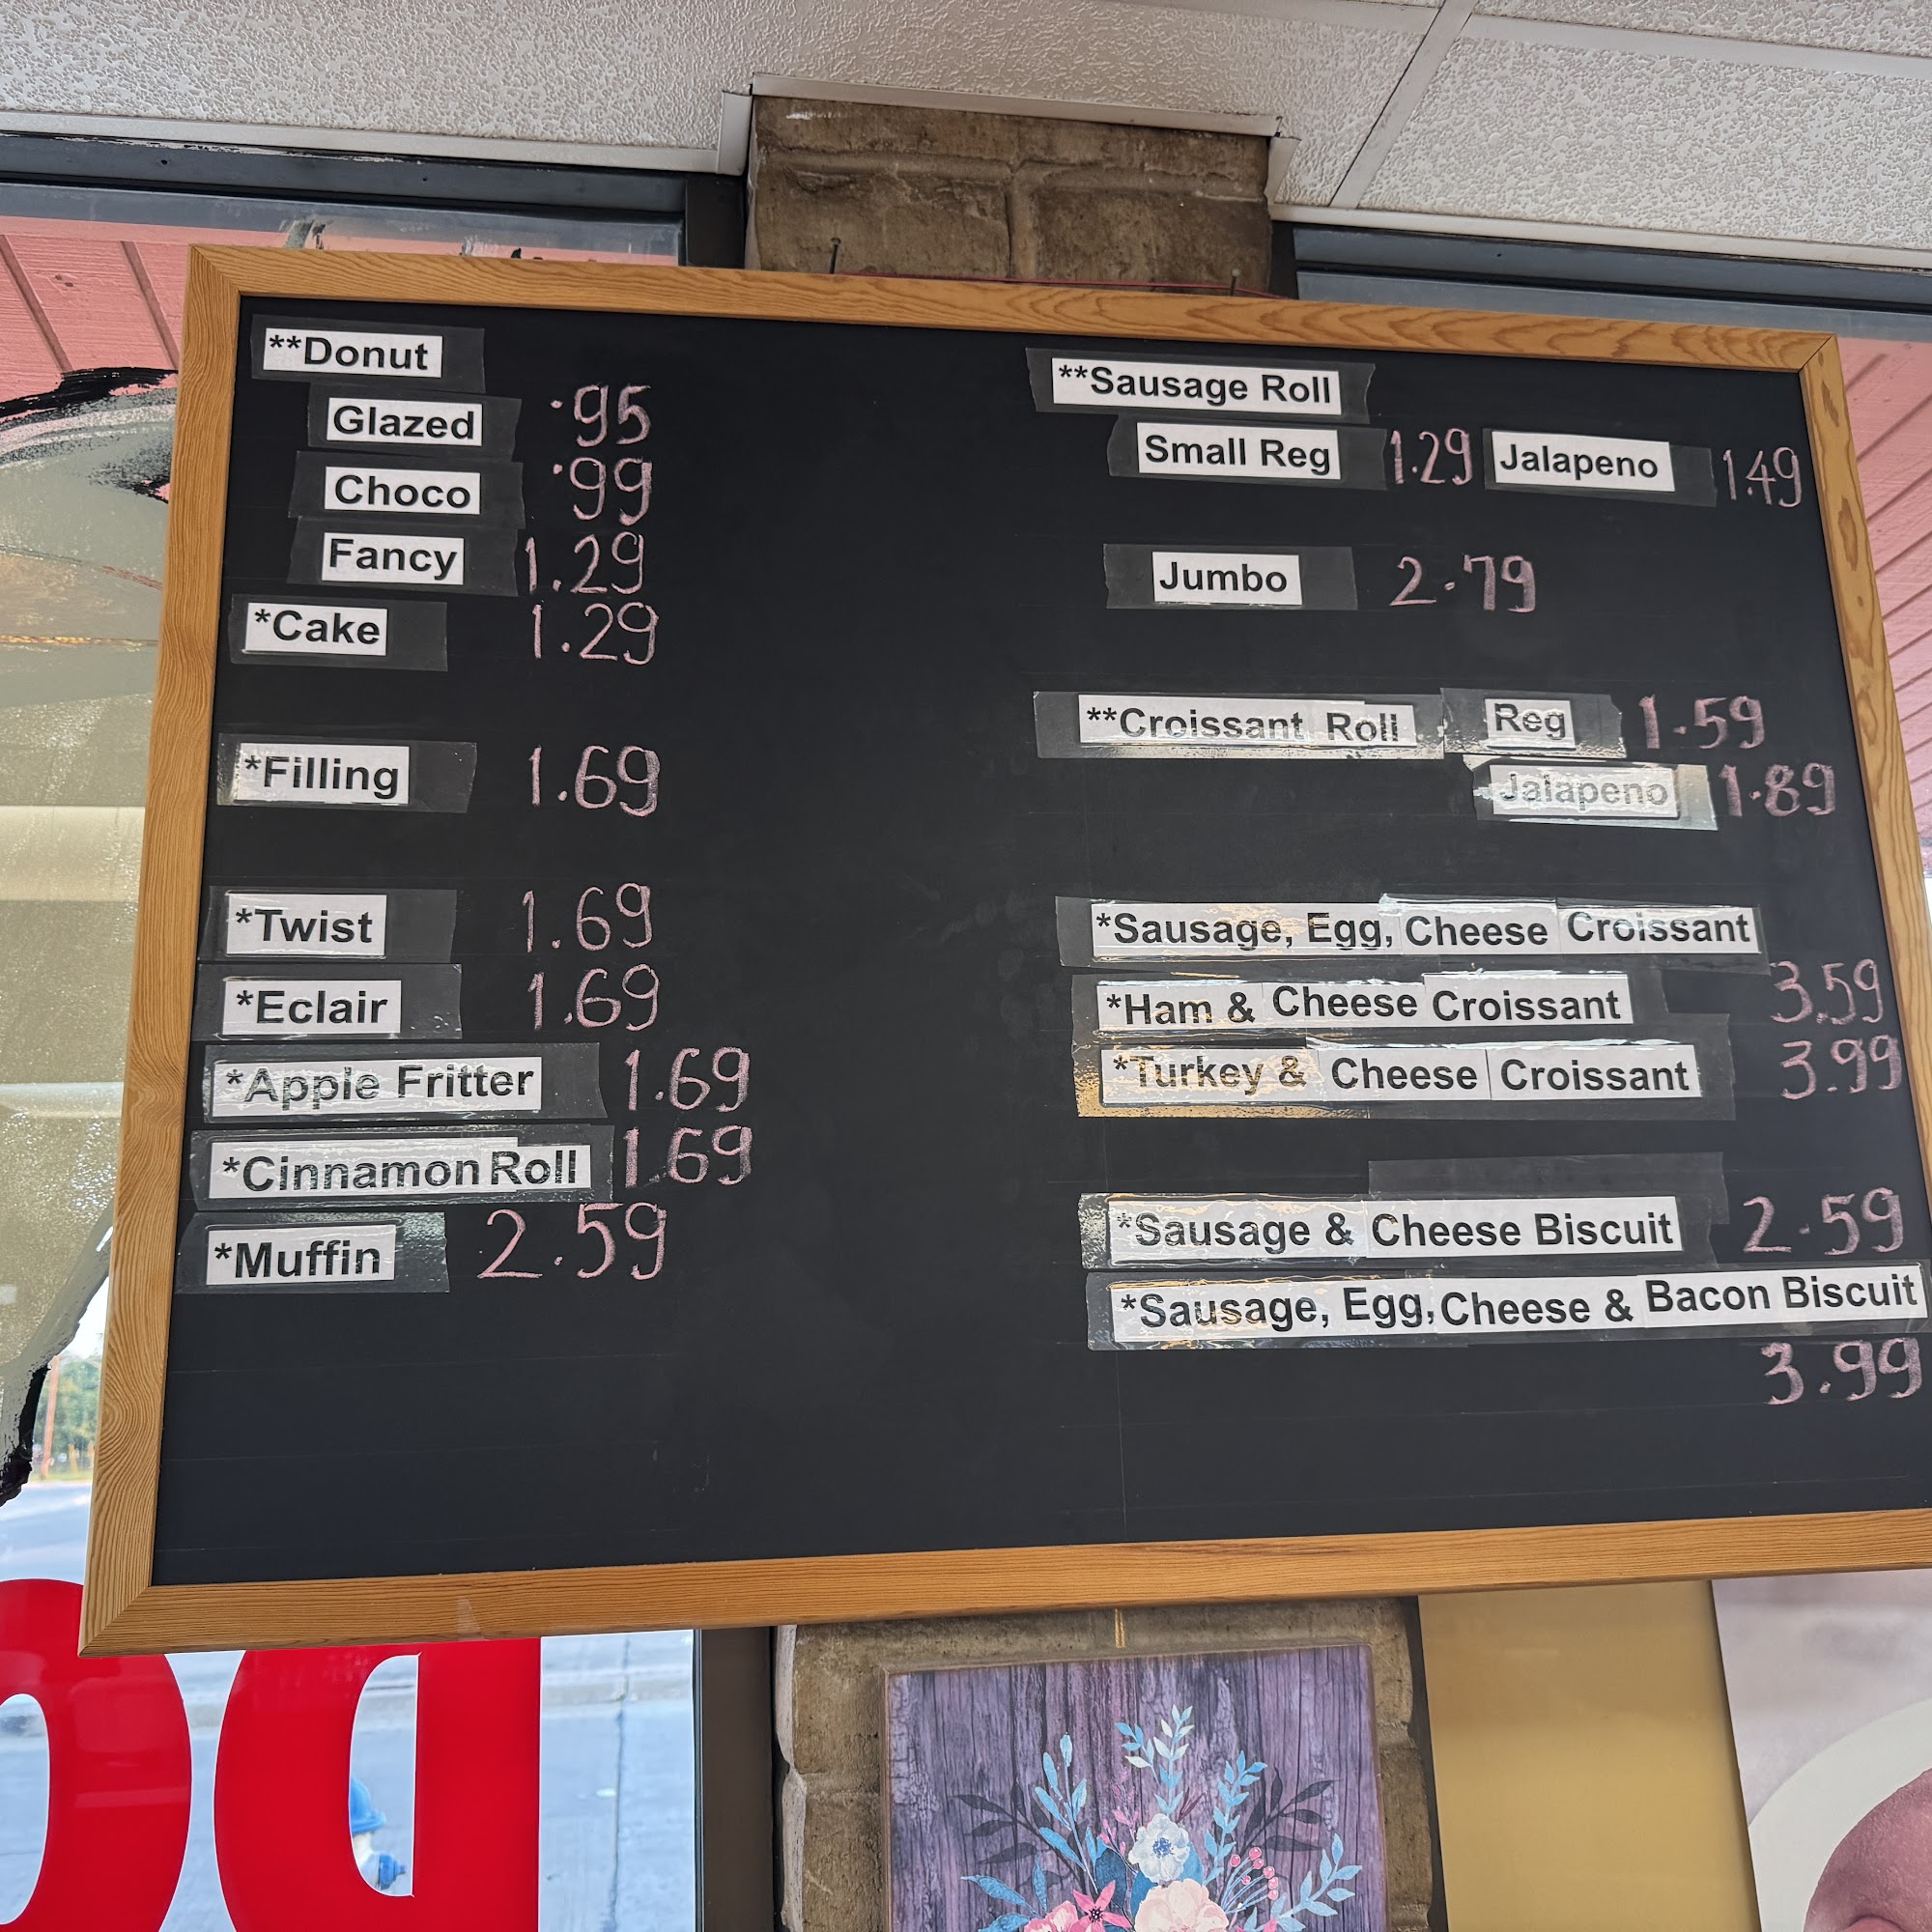 **Donut
Glazed .95
Choco .99
Fancy 1.29
*Cake 1.29
*Filling 1.69
*Twist 1.69
*Eclair 1.69
*Apple Fritter 1.69
*Cinnamon Roll 1.69
*Muffin 2.59
**Sausage Roll
Small Reg 1.29 Jalapeno 1.49
Jumbo 2.79
**Croissant Roll Reg 1.59
Jalapeno 1.89
*Sausage, Egg, Cheese Croissant
*Ham & Cheese Croissant 3.59
*Turkey & Cheese Croissant 3.99
*Sausage & Cheese Biscuit 2.59
*Sausage, Egg, Cheese & Bacon Biscuit
3.99